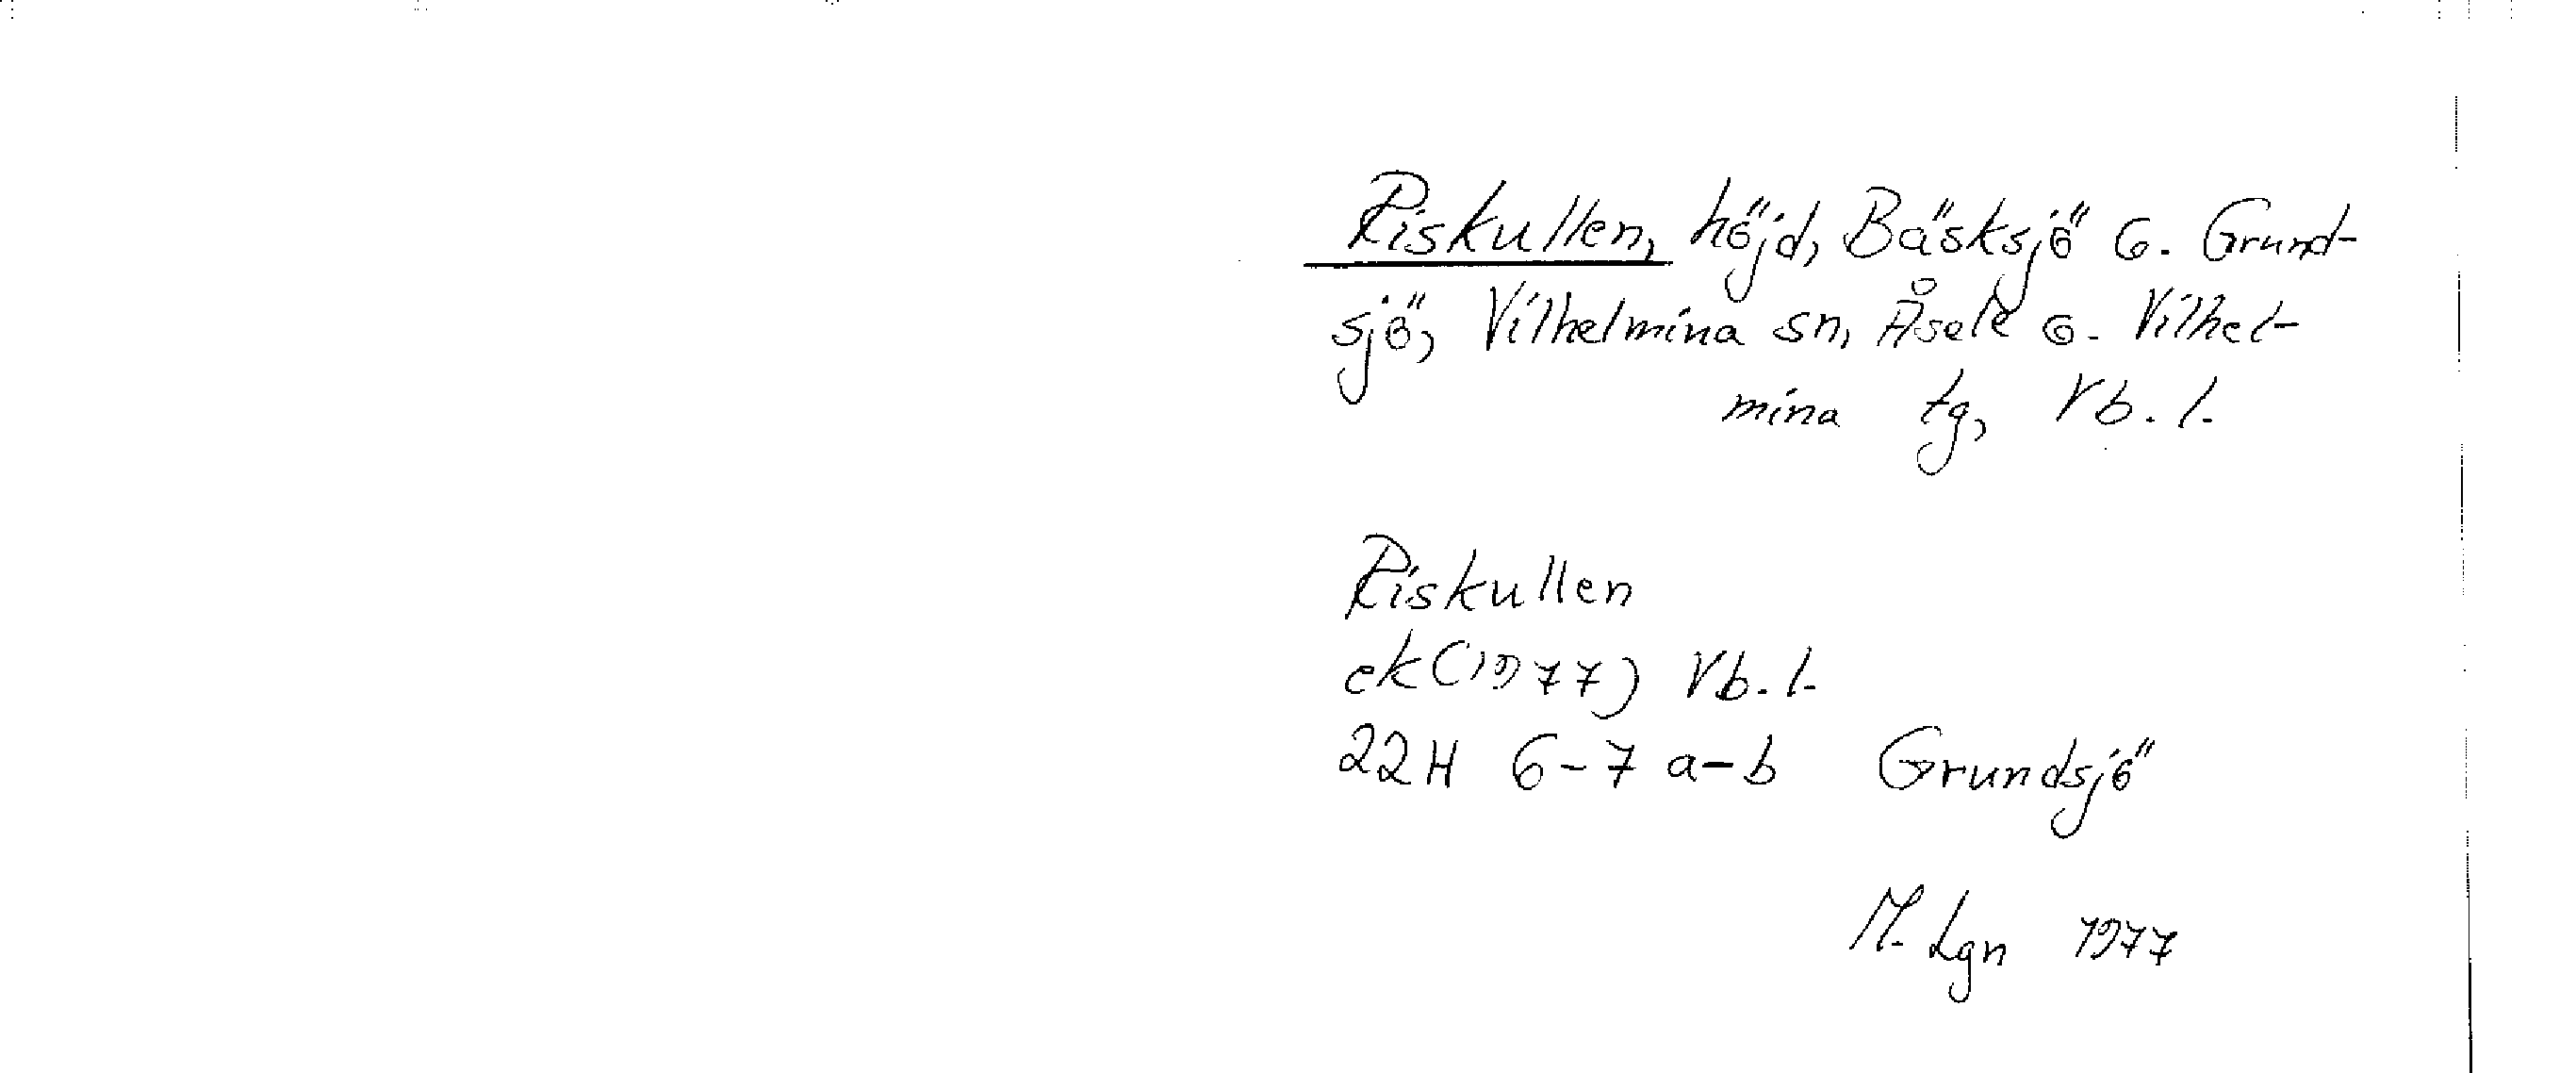 Riskullen, höjd, Bäsksjö o. Grund-
sjö, Vilhelmina sn, Åsele o. Vilhel-
mina tg, Vb. l.
Riskullen
ek (1977) Vb. l.
22H 6-7 a-b Grundsjö
M. Lgn 1977